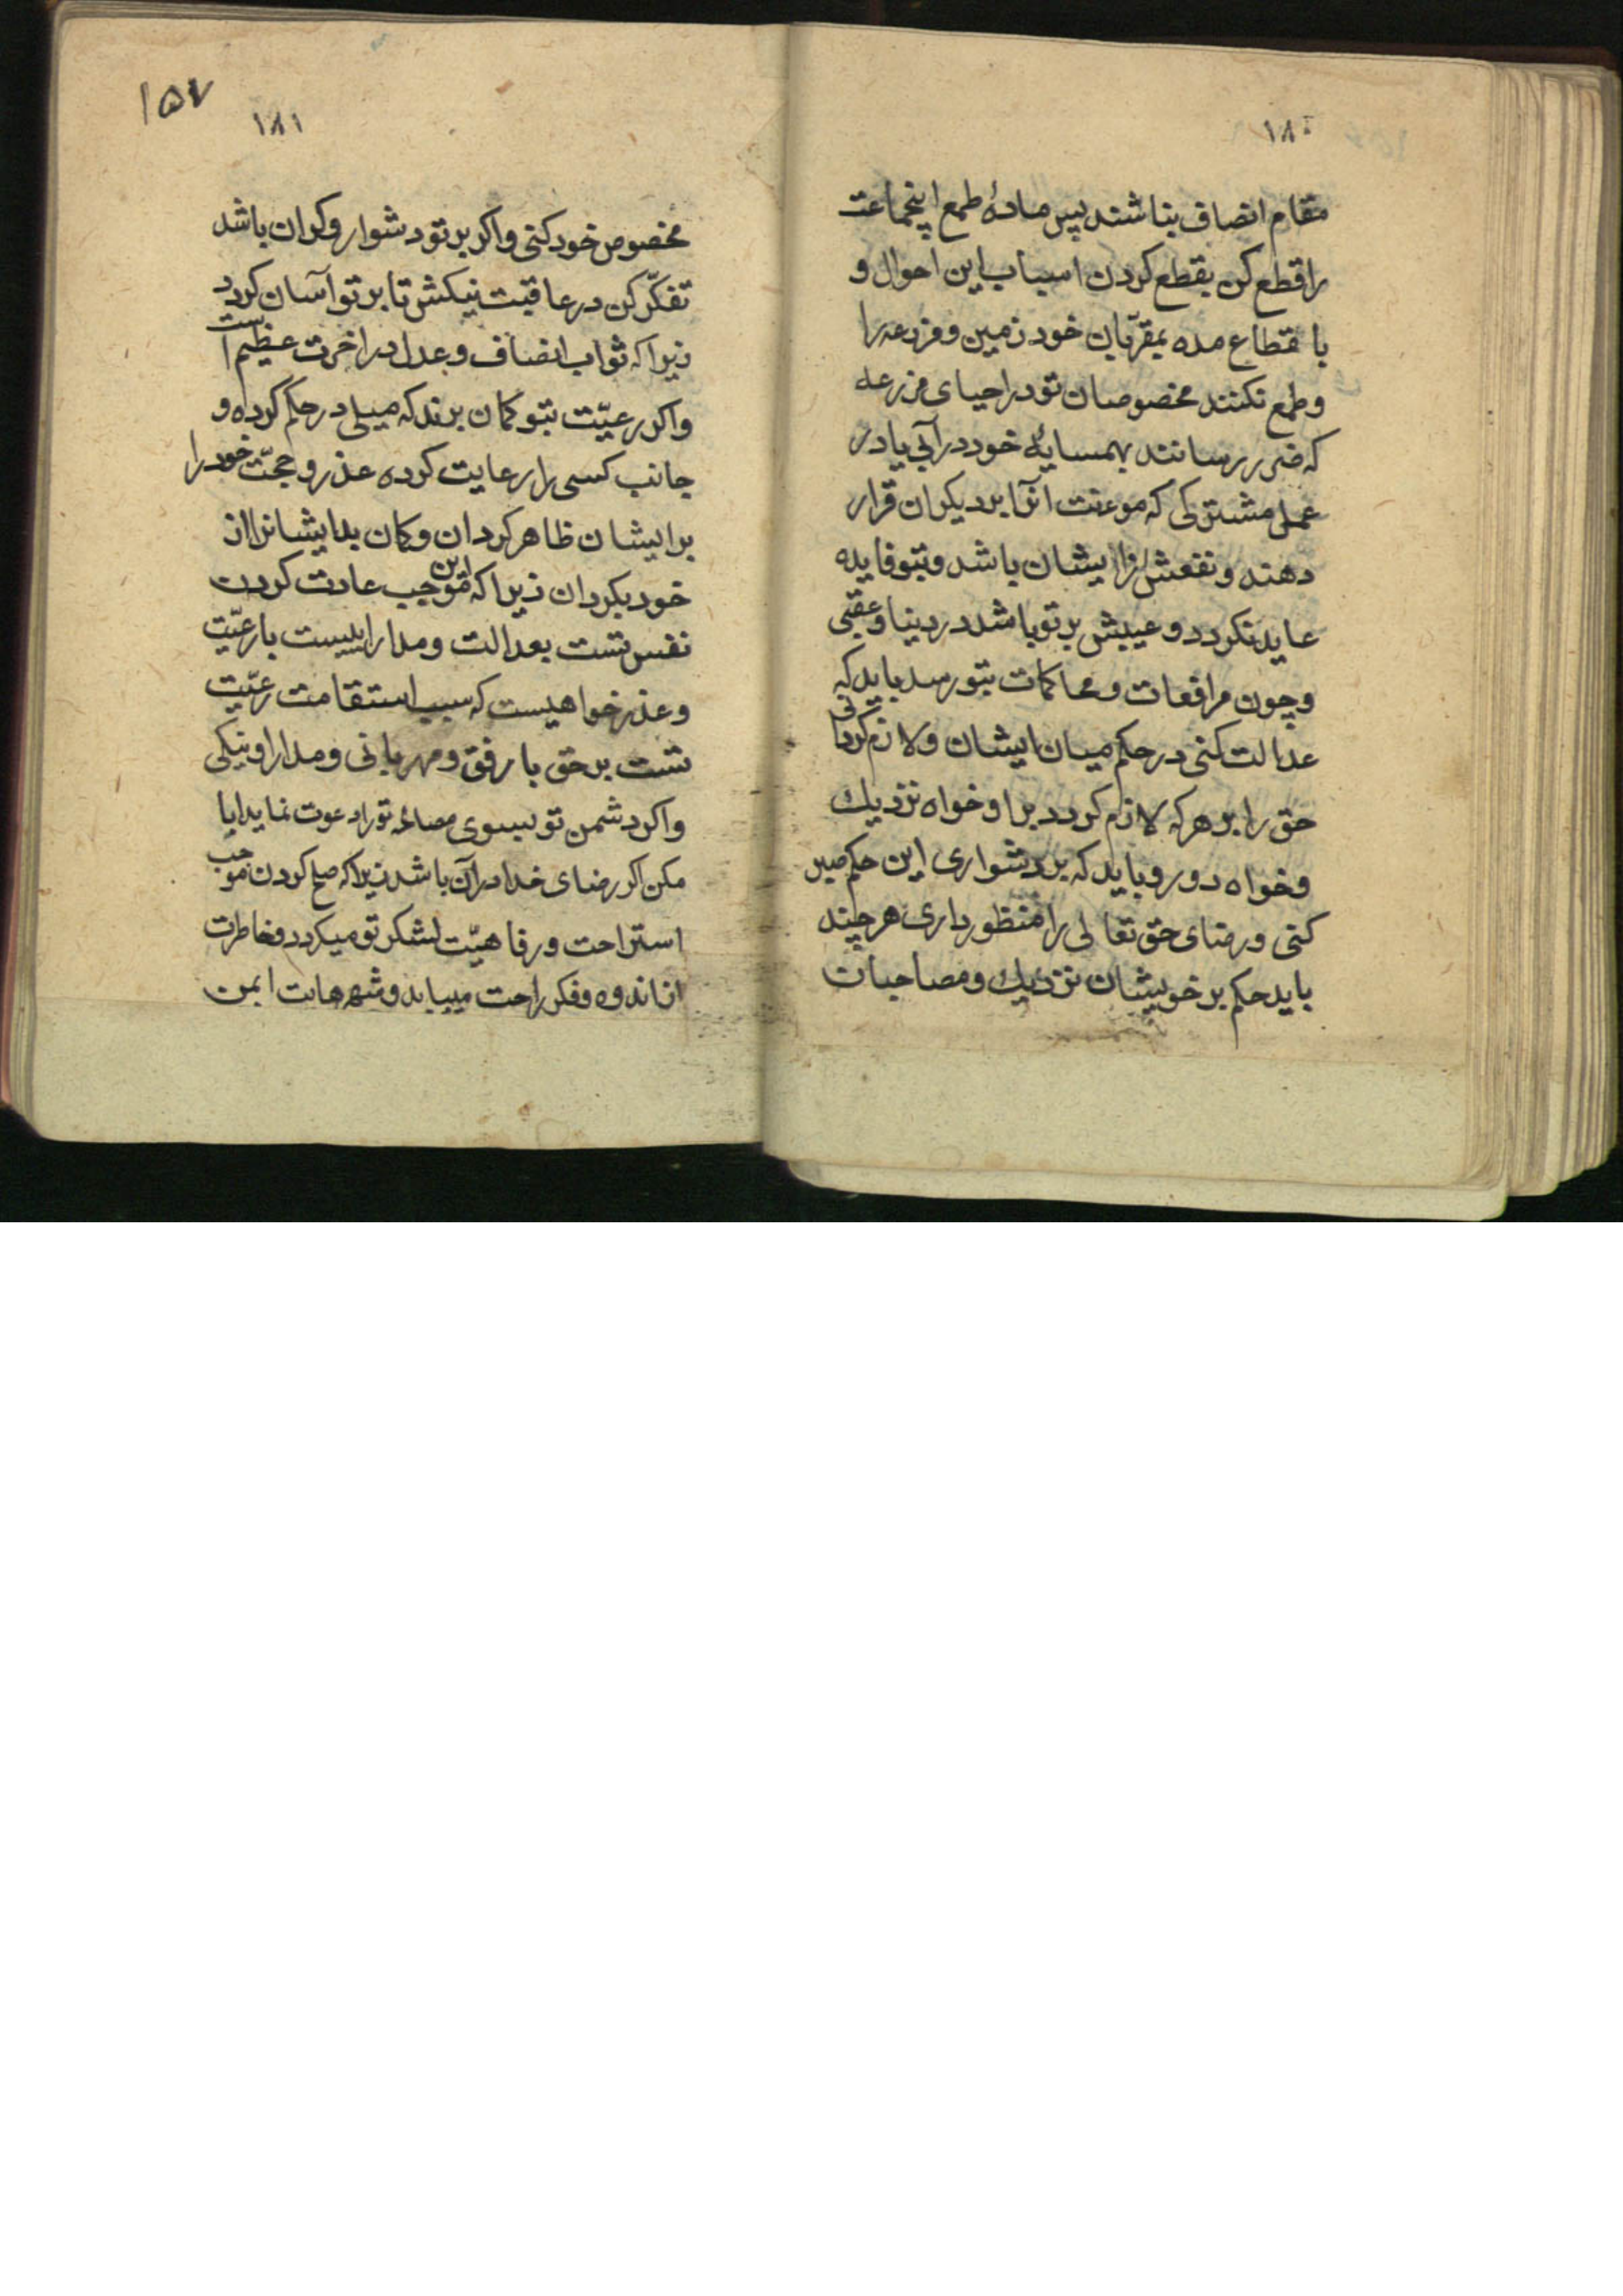 ۱۸۰
مقام انصاف بناشند پس مادهٔ طمع اینجماعت
را قطع کن بقطع کردن اسباب این احوال و
باقطاع مده بمقربان خود زمین و مزرعه را
و طمع نکنند مخصوصان تو در احیای مزرعهٔ
که ضرر رسانند بهمسایهٔ خود در آبی یا در
عمل مشترکی که موءنت آنرا بر دیکران قرار
دهند و نفعش از ایشان باشد و بتو فایده
عاید نکردد و عیبش بر تو باشد در دنیا و عقبی
و چون مرافعات و محاکمات بتو رسد باید که
عدالت کنی در حکم میان ایشان و لازم کردانی
حق را بر هر که لازم کردد برا و خواه نزدیك
و خواه دور و باید که بر دشواری این حکم صبر
کنی و رضای حق تعالی را منظور داری هر چند
باید حکم بر خویشان نزدیك و مصاحبان
۱۵۷
۱۸۱
مخصوص خود کنی و اکر بر تو دشوار و کران باشد
تفکّر کن در عاقبت نیکش تا بر تو آسان کردد
زیرا که ثواب انصاف و عدل در اخرت عظیم است
و اکر رعیّت بتو کمان برند که میلی در حکم کرده و
جانب کسی را رعایت کرده عذر و حجّت خود را
بر ایشان ظاهر کردان و کمان بد ایشانرا از
خود بکردان زیرا که این موجب عادت کردن
نفس تست بعدالت و مدارائیست با رعیّت
و عذر خواهیست که سبب استقامت رعیّت
تست بر حق با رفق و مهربانی و مدارا و نیکی
و اکر دشمن تو بسوی مصالحه تو را دعوت نماید ابا
مکن اکر رضای خدا در آن باشد زیرا که صلح کردن موجب
استراحت و رفاهیّت لشکر تو میکردد و خاطرت
از اندوه و فکر راحت مییابد و شهرهایت ایمن